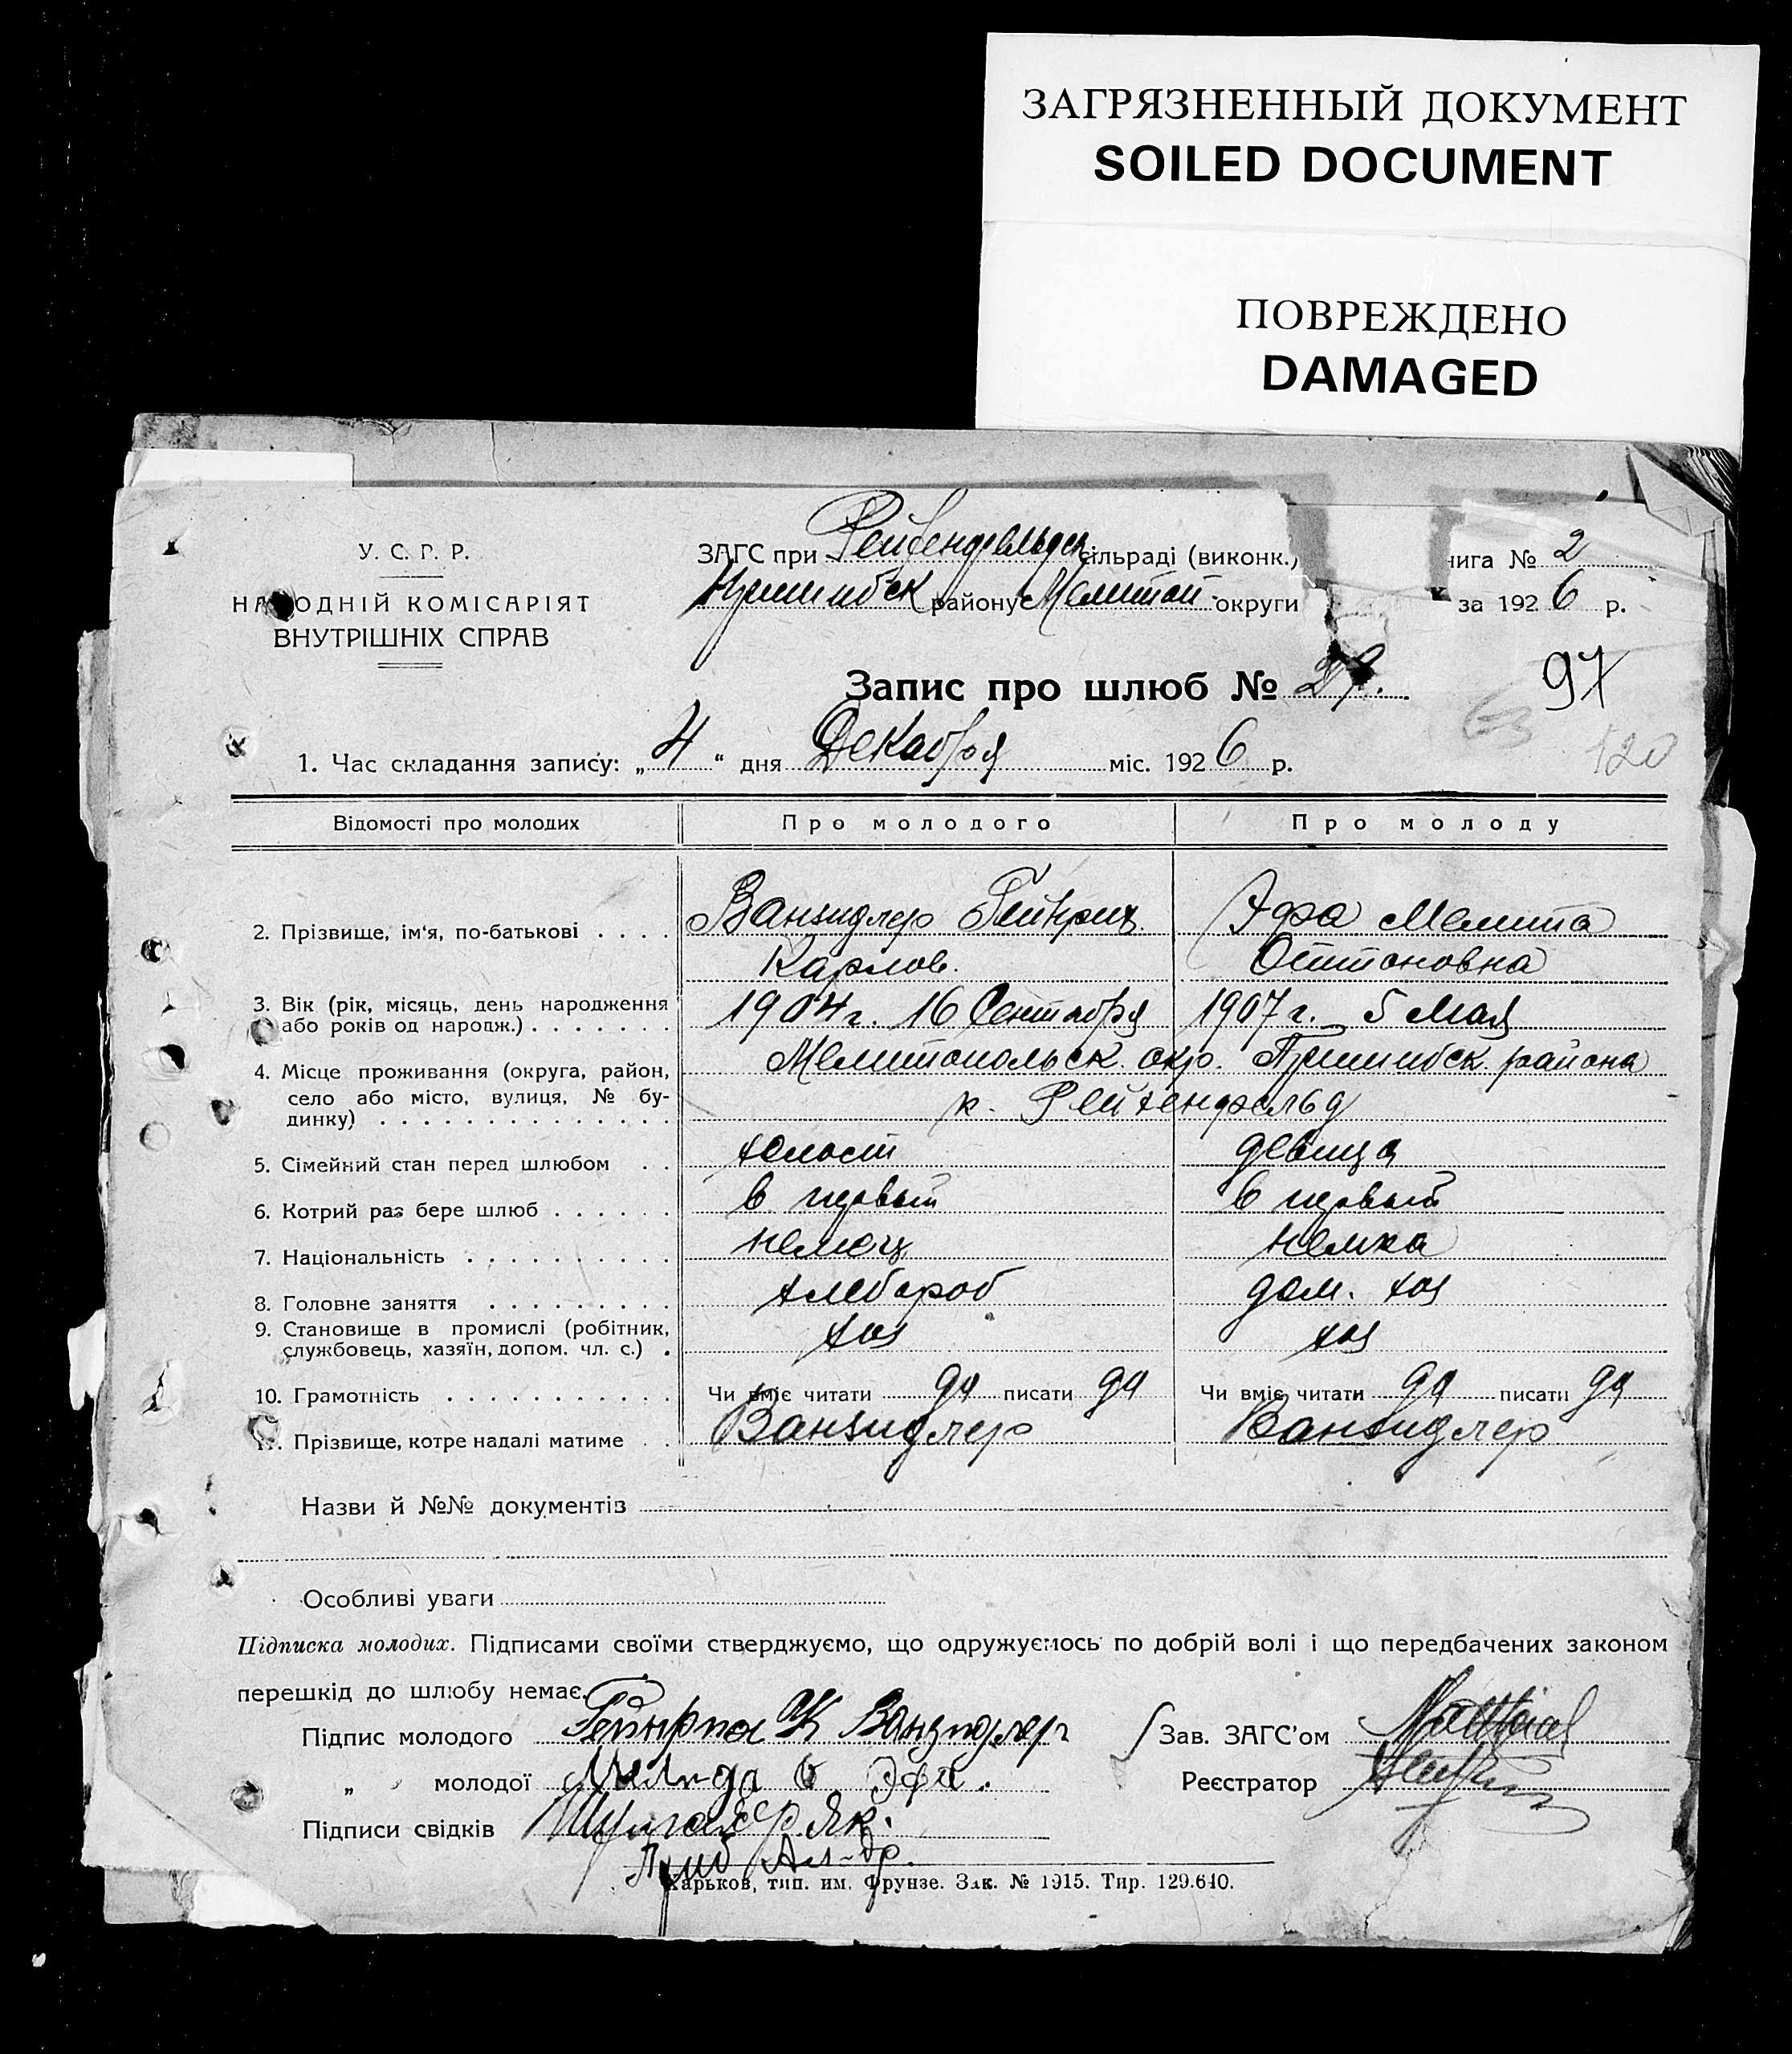 ЗАГРЯЗНЕННЫЙ ДОКУМЕНТ
SOILED DOCUMENT
ПОВРЕЖДЕНО
DAMAGED
У. С. Р. Р.
НАРОДНІЙ КОМІСАРІЯТ
ВНУТРІШНІХ СПРАВ
ЗАГС при Рейхенфельдск сільраді (виконк.) нига № 2
Пришибск району Мелитоп. округи за 1926 р.
Запис про шлюб №
97
63
120
1. Час складання запису: „4“ дня Декабря міс. 1926 р.
Відомості про молодих Про молодого Про молоду
2. Прізвище, ім'я, по-батькові . . . . Ванзидлер Гейнрих Эфа Мелита
Карлов. Оттоновна
3. Вік (рік, місяць, день народження 1904 г. 16 Сентября 1907 г. 5 Мая
або років од народж.) . . . . . . .
4. Місце проживання (округа, район, Мелитопольск. окр. Пришибск. района
село або місто, вулиця, № бу- к. Рейхенфельд
динку) . . . . . . . . . . . . . .
5. Сімейний стан перед шлюбом . . холост девица
6. Котрий раз бере шлюб . . . . . . в первый в первый
7. Національність . . . . . . . . . . немец немка
8. Головне заняття . . . . . . . . . хлебороб дом. хоз
9. Становище в промислі (робітник, хоз хоз
службовець, хазяїн, допом. чл. с.) .
10. Грамотність . . . . . . . . . . . Чи вміє читати да писати да Чи вміє читати да писати да
11. Прізвище, котре надалі матиме . . Ванзидлер Ванзидлер
Назви й №№ документів
Особливі уваги
Підписка молодих. Підписами своїми стверджуємо, що одружуємось по добрій волі і що передбачених законом
перешкід до шлюбу немає.
Підпис молодого Гейнрих К Ванзидлер Зав. ЗАГС'ом
„ молодої О. Эфа. Реєстратор
Підписи свідків Як.
Ал-др.
Харьков, тип. им. Фрунзе. Зак. № 1915. Тир. 129.640.